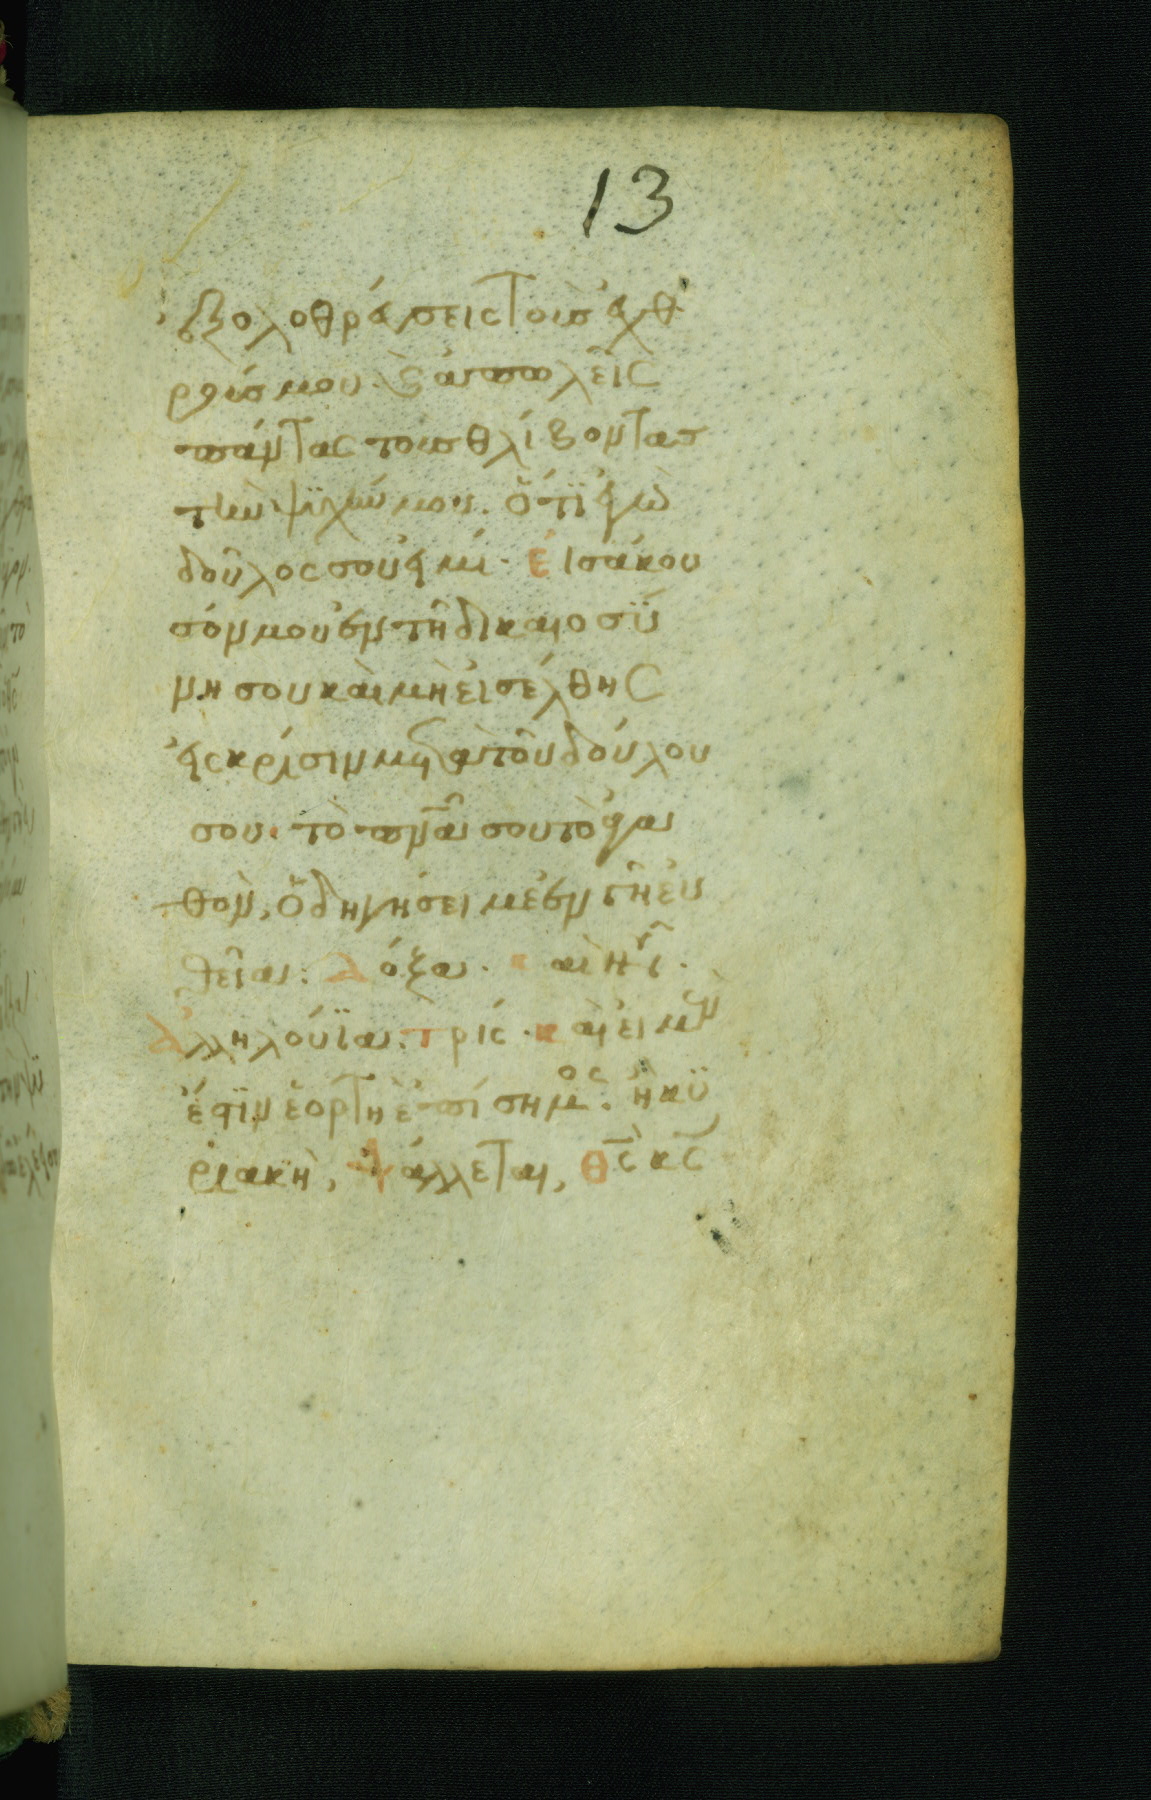 13
ἐξολοθρεύσεις τοὺς ἐχθ
ρούς μου. καὶ ἀπολεῖς
πάντας τοὺς θλίβοντας
τὴν ψϋχήν μου. ὅτϊ ἐγὼ
δοῦλος σου εἰμί· εἰσάκου
σόν μου ἐν τῆ δικαιοσύ
νη σου καὶ μὴ εἰσέλθης
εἰς κρίσιν μετὰ τοῦ δούλου
σου· τὸ πνᾶ σου τὸ ἀγα
θὸν, ὁδηγήσει με ἐν τῆ εὐ
θεῖα: Δόξα· καὶ νῦ·
Ἀλληλούϊα: τρίς· καὶ εἰ μὲν
ἑορτὴ ἐπίσημος. ἢ κϋ
ριακὴ, ψάλλεται, Θς κς